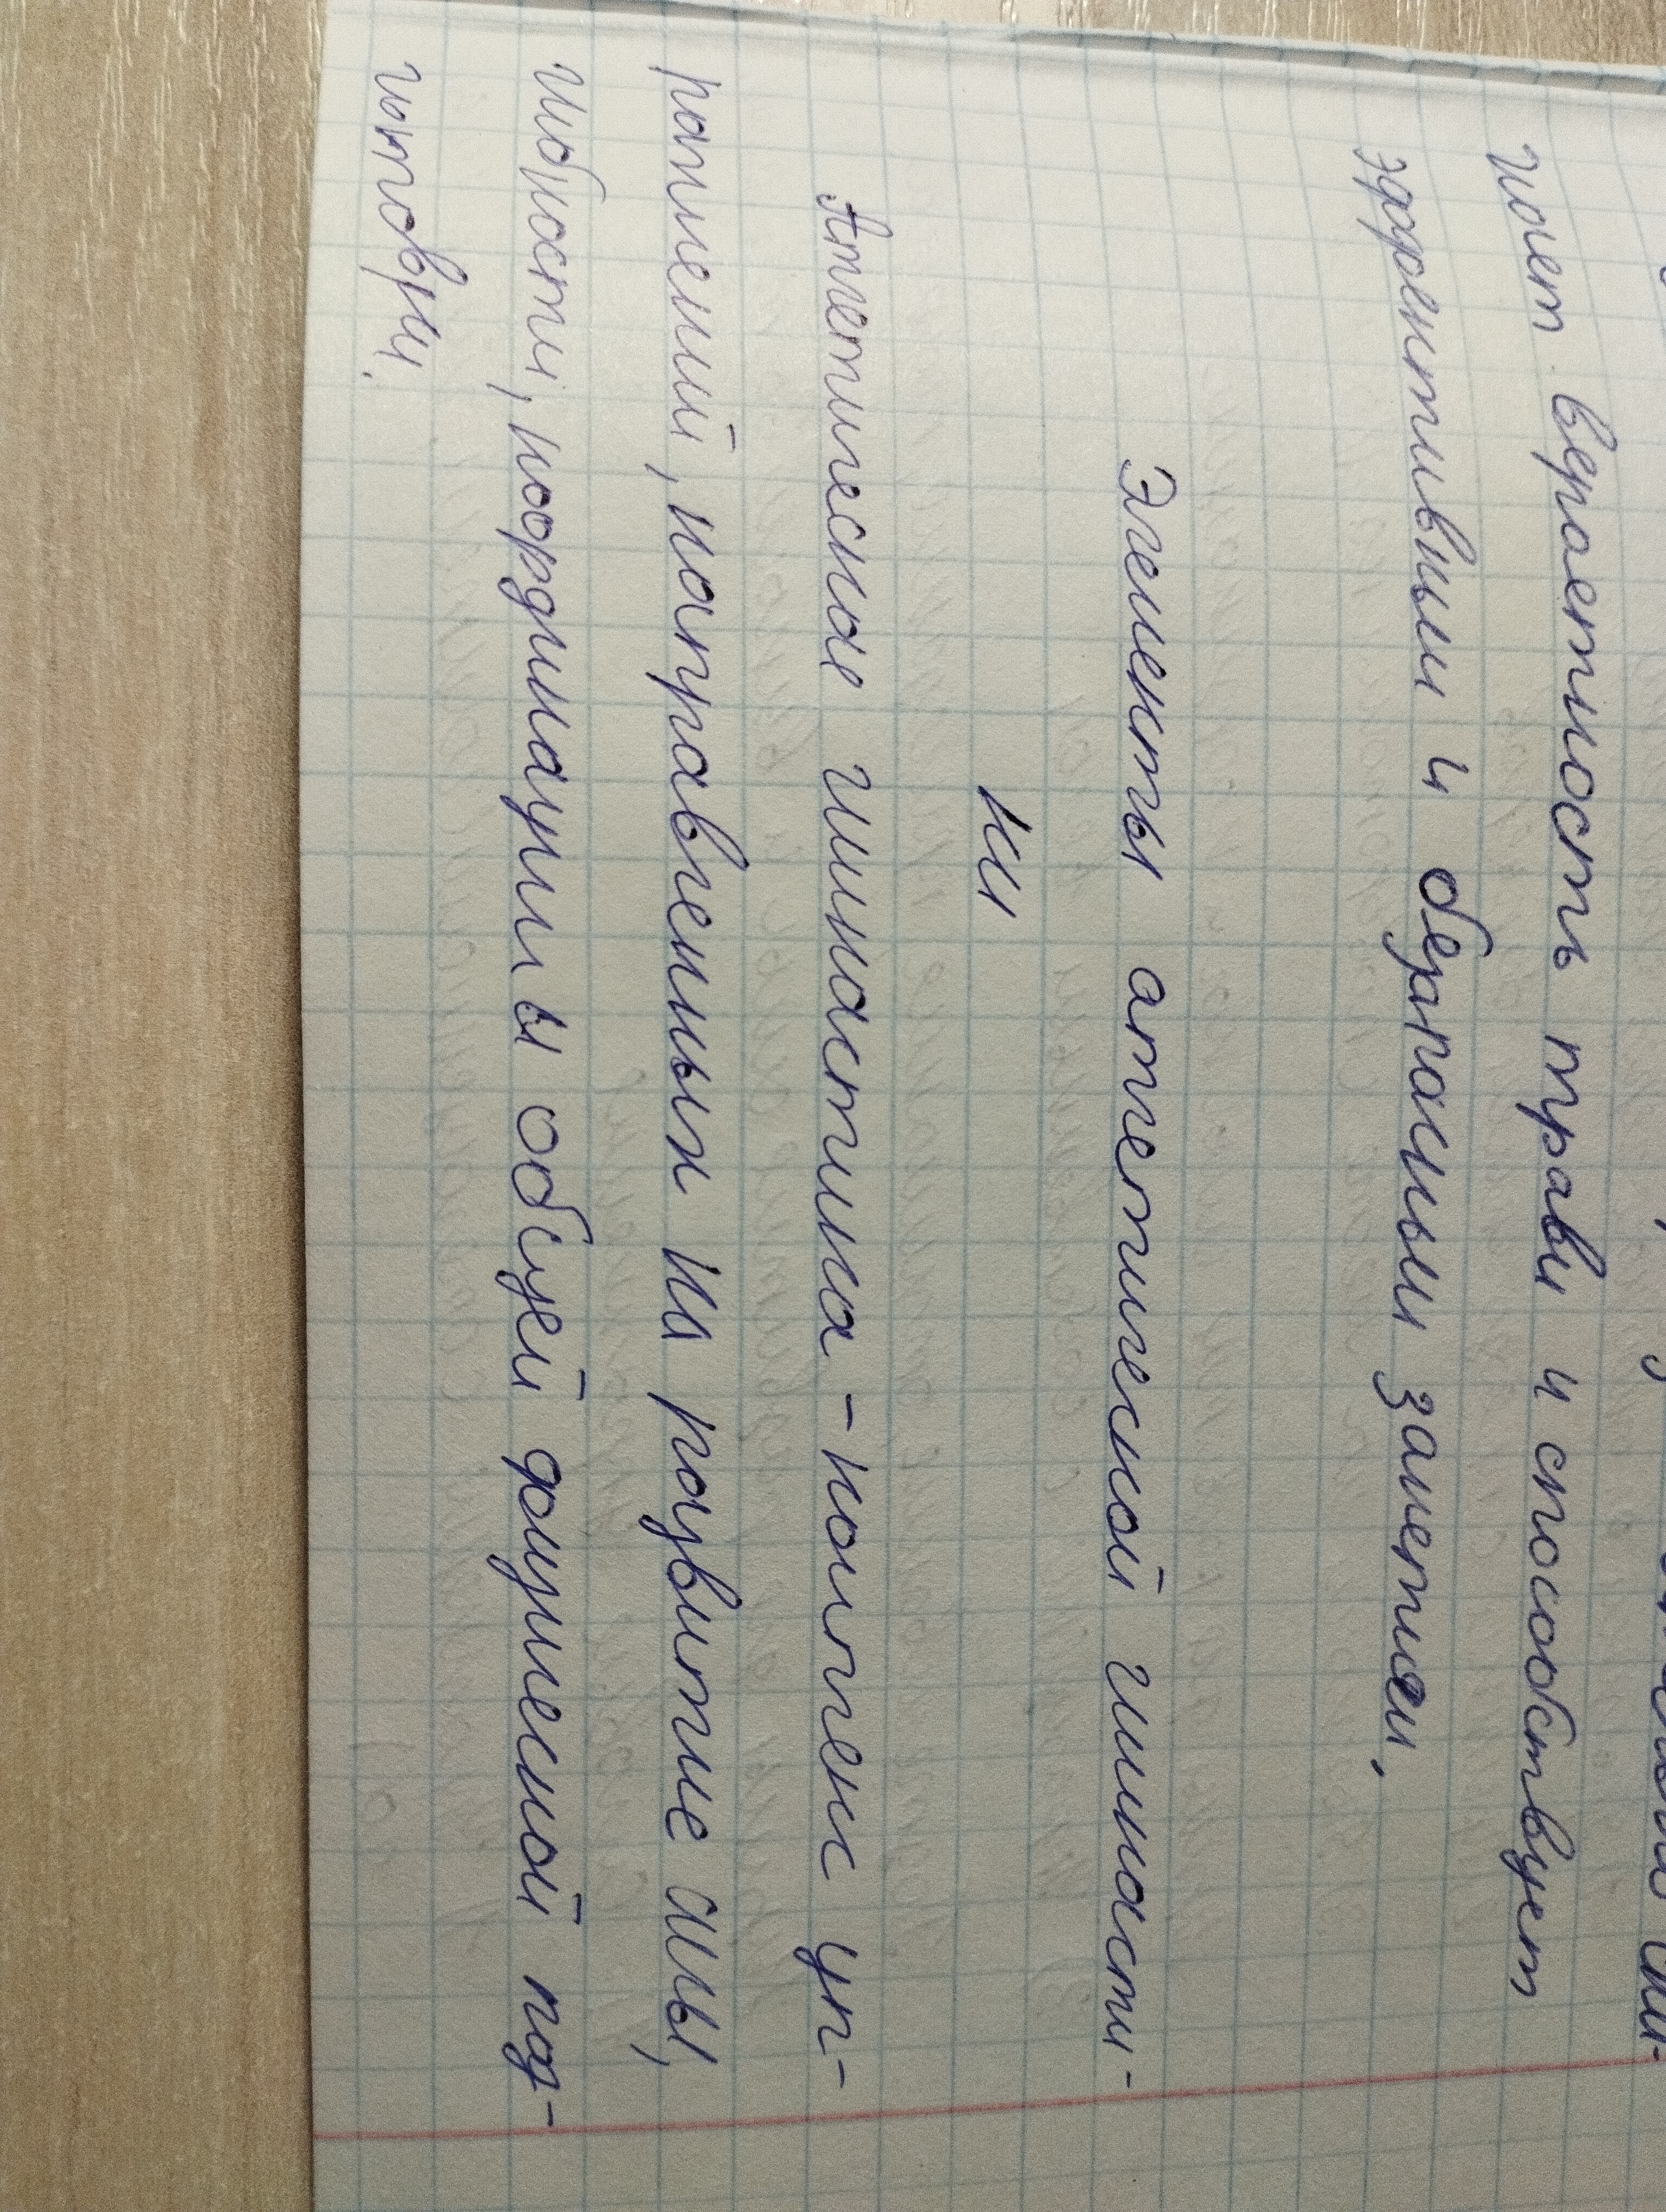 жает вероятность травм и способствует
эффективным и безопасным занятием.
Элементы атлетической гимнасти-
ки
Атлетическая гимнастика - комплекс уп-
ражнений, направленных на развитие силы,
гибкости, координации и общей физической под-
готовки.